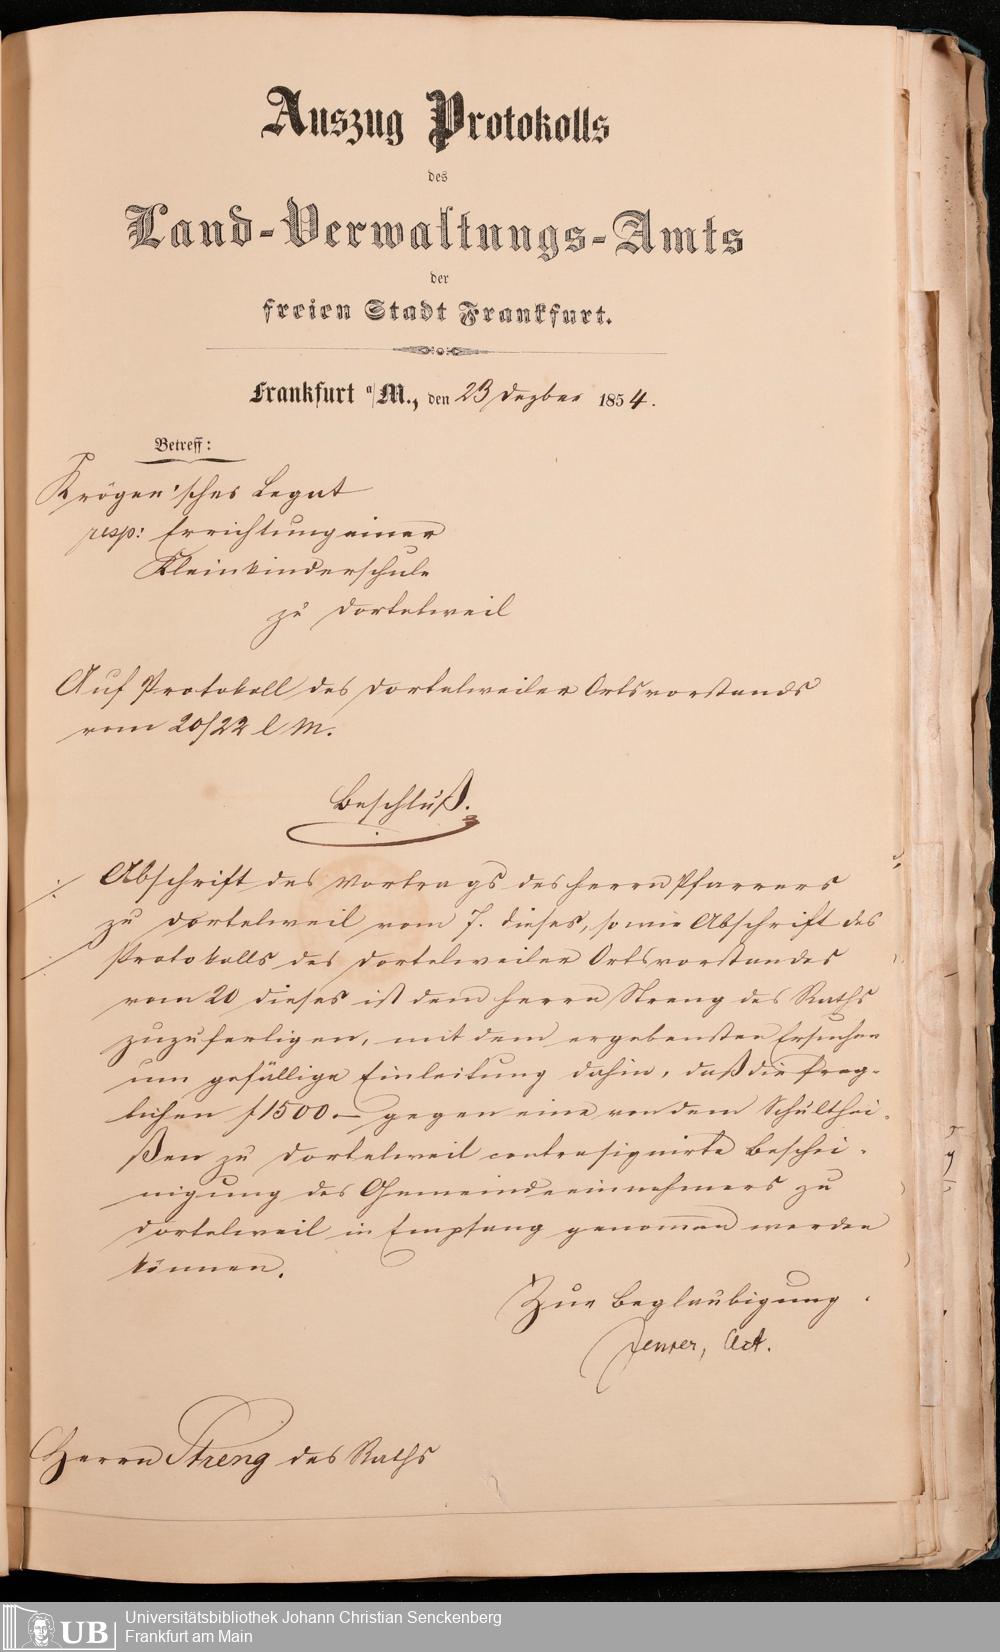 Auszug Protokolls
des
Land-Verwaltungs-Amts
der
freien Stadt Frankfurt.
Frankfurt a/M., den 23 Dezber 1854.
Betreff:
Kröger'sches Legat
resp: Errichtung einer
Kleinkinderschule
zu Dortelweil
Auf Protokoll des Dortelweiler Ortsvorstands
vom 20/22 l M.
Beschluß.
Abschrift des Vortrags des Herrn Pfarrers
zu Dortelweil vom 7. dieses, sowie Abschrift des
Protokolls des Dortelweiler Ortsvorstandes
vom 20 dieses ist dem Herrn Streng des Raths
zuzufertigen, mit dem ergebensten Ersuchen
um gefällige Einleitung dahin, daß die frag-
lichen f 1500.— gegen eine von dem Schulthei-
ßen zu Dortelweil contrasignirte Beschei-
nigung des Gemeindeeinnehmers zu
Dortelweil in Empfang genomen werden
können.
Zur Beglaubigung
Act.
Herrn Streng des Raths
UB
Universitätsbibliothek Johann Christian Senckenberg
Frankfurt am Main